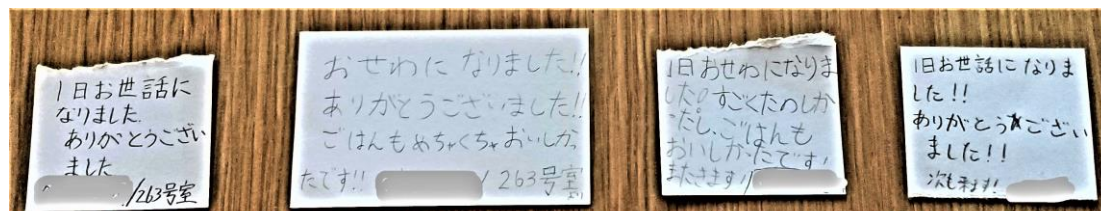 1日お世話に
なりました.
ありがとうござい
ました
/263号室
おせわに なりました!!
ありがとうございました!!
ごはんもめちゃくちゃおいしかっ
たです!! / 263号室
より
1日おせわになりま
した。すごくたのしか
ったし、ごはんも
おいしかったです!
またきます!!
1日お世話に なりま
した!!
ありがとうござい
ました!!
次も来ます!